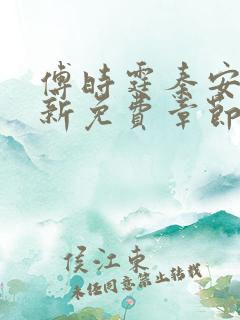 傅時霆秦安
新免費章節
侯江東
未经同意禁止转载